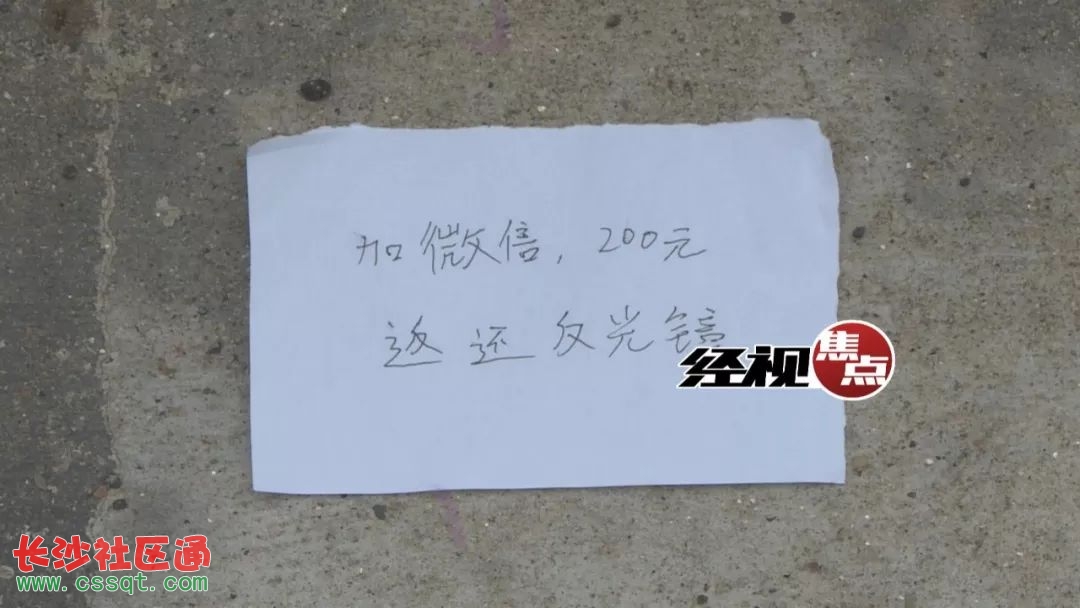 加微信，200元
返还反光镜
经视焦点
长沙社区通
www.cssqt.com